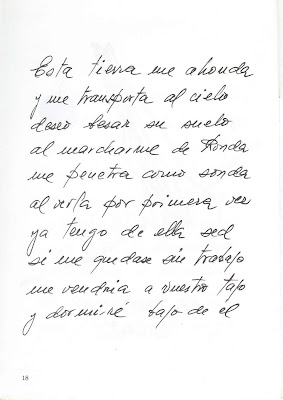 Esta tierra me ahonda
y me transporta al cielo
deseo besar su suelo
al marcharme de Ronda
me penetra como sonda
al verla por primera vez
ya tengo de ella sed
si me quedase sin trabajo
me vendria a vuestro tajo
y dormiré bajo de el
18